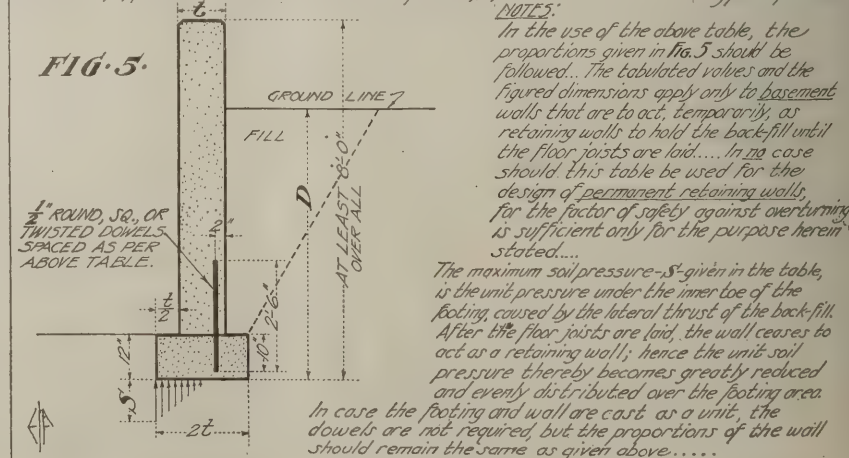 t
FIG. 5.
GROUND LINE
FILL
D
AT LEAST 8'-0"
OVER ALL
1/2" ROUND, SQ., OR
TWISTED DOWELS
SPACED AS PER
ABOVE TABLE.
2"
t/2
2'-6"
10"
12"
S
2t
NOTES:
In the use of the above table, the
proportions given in FIG. 5 should be
followed... The tabulated values and the
figured dimensions apply only to basement
walls that are to act, temporarily, as
retaining walls to hold the back-fill until
the floor joists are laid..... In no case
should this table be used for the
design of permanent retaining walls,
for the factor of safety against overturning
is sufficient only for the purpose herein
stated....
The maximum soil pressure-S-given in the table,
is the unit pressure under the inner toe of the
footing, caused by the lateral thrust of the back-fill.
After the floor joists are laid, the wall ceases to
act as a retaining wall; hence the unit soil
pressure thereby becomes greatly reduced
and evenly distributed over the footing area.
In case the footing and wall are cast as a unit, the
dowels are not required, but the proportions of the wall
should remain the same as given above.....